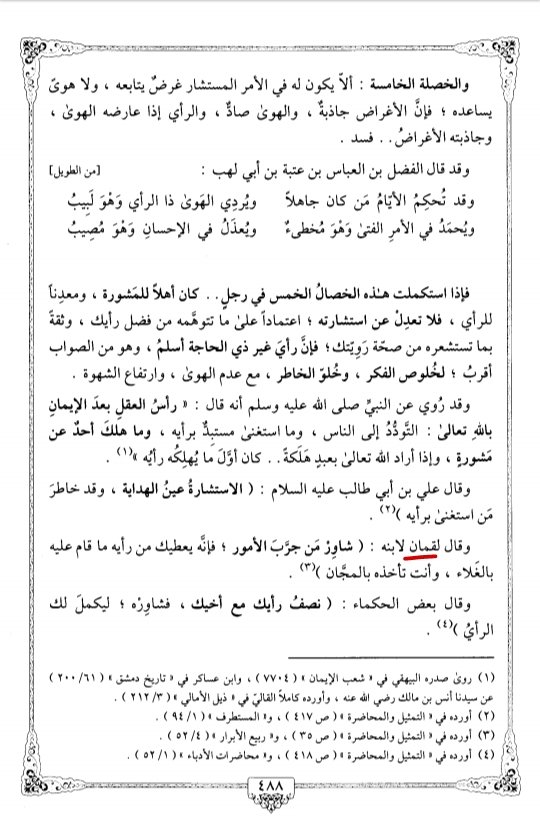 والخصلة الخامسة : ألاّ يكون له في الأمر المستشار غرضٌ يتابعه ، ولا هوىً
يساعده ؛ فإنَّ الأغراض جاذبةٌ ، والهوىٰ صادٌّ ، والرأي إذا عارضه الهوىٰ ،
وجاذبته الأغراضُ . . فسد .
وقد قال الفضل بن العباس بن عتبة بن أبي لهب : [من الطويل]
وقد تُحكِمُ الأيّامُ مَن كان جاهلاً ويُردِي الهَوىٰ ذا الرأيِ وَهْوَ لَبِيبُ
ويُحمَدُ في الأمرِ الفتىٰ وَهْوَ مُخطىءٌ ويُعذَلُ في الإحسانِ وَهْوَ مُصِيبُ
فإذا استكملت هـٰذه الخصالُ الخمس في رجلٍ . . كان أهلاً للمَشورة ، ومعدِناً
للرأي ، فلا تعدِلْ عن استشارته ؛ اعتماداً علىٰ ما تتوهَّمه من فضل رأيك ، وثقةً
بما تستشعره من صحّة رَوِيّتك؛ فإنَّ رأيَ غير ذي الحاجة أسلمُ ، وهو من الصواب
أقربُ ؛ لخُلوص الفكر ، وخُلوّ الخاطر ، مع عدم الهوىٰ ، وارتفاع الشهوة .
وقد رُوي عن النبيِّ صلى الله عليه وسلم أنه قال : « رأسُ العقلِ بعدَ الإيمانِ
باللهِ تعالىٰ : التَّودُّدُ إلى الناس ، وما استغنىٰ مستبِدٌّ برأيه ، وما هلكَ أحدٌ عن
مَشورةٍ ، وإذا أراد الله تعالىٰ بعبدٍ هَلَكةً . . كان أوَّلَ ما يُهلِكُه رأيُه »(١) .
وقال علي بن أبي طالب عليه السلام : ( الاستشارةُ عينُ الهداية ، وقد خاطرَ
مَن استغنىٰ برأيه )(٢) .
وقال لقمان لابنه : ( شاوِرْ مَن جرَّبَ الأمور ؛ فإنَّه يعطيك من رأيه ما قام عليه
بالغَلاء ، وأنت تأخذه بالمجَّان )(٣) .
وقال بعض الحكماء : ( نصفُ رأيك مع أخيك ، فشاوِرْه ؛ ليكملَ لك
الرأيُ )(٤) .
(١) روىٰ صدره البيهقي في « شعب الإيمان » ( ٧٧٠٤ ) ، وابن عساكر في « تاريخ دمشق » ( ٢٠٠/٦١ )
عن سيدنا أنس بن مالك رضي الله عنه ، وأورده كاملاً القاليّ في « ذيل الأمالي » ( ٢١٢/٣ ) .
(٢) أورده في « التمثيل والمحاضرة » ( ص ٤١٧ ) ، و« المستطرف » ( ٩٤/١ ) .
(٣) أورده في « التمثيل والمحاضرة » ( ص ٣٥ ) ، و« ربيع الأبرار » ( ٥٢/٤ ) .
(٤) أورده في « التمثيل والمحاضرة » ( ص ٤١٨ ) ، و« محاضرات الأدباء » ( ٥٢/١ ) .
٤٨٨